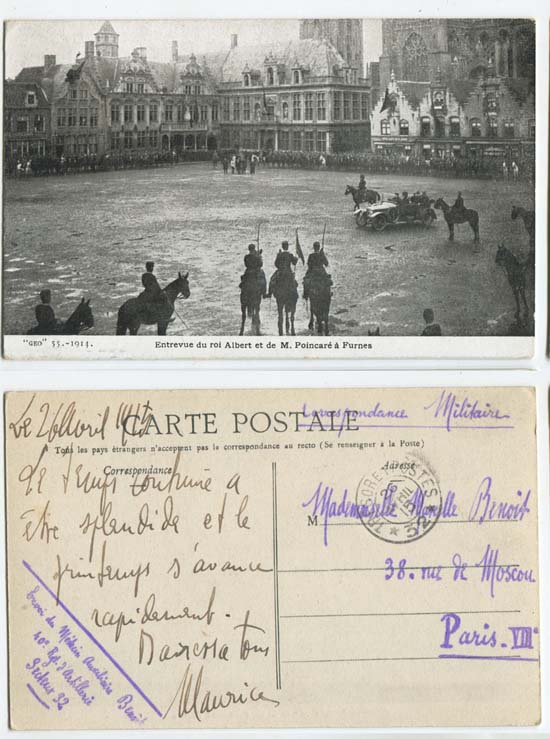 "GEO" 55.-1914.
Entrevue du roi Albert et de M. Poincaré à Furnes
Le 26 Avril 1915
CARTE POSTALE
Correspondance Militaire
Tous les pays étrangers n'acceptent pas la correspondance au recto (Se renseigner à la Poste)
Correspondance
Adresse
Le temps continue a
être splendide et le
printemps s'avance
rapidement.
tous
Maurice
Envoi du Médecin Auxiliaire Benoit
40e Rgt d'Artillerie
Secteur 32
TRESOR ET POSTES
* 32 *
M Mademoiselle Benoit
38. rue de Moscou
Paris. VIIIe